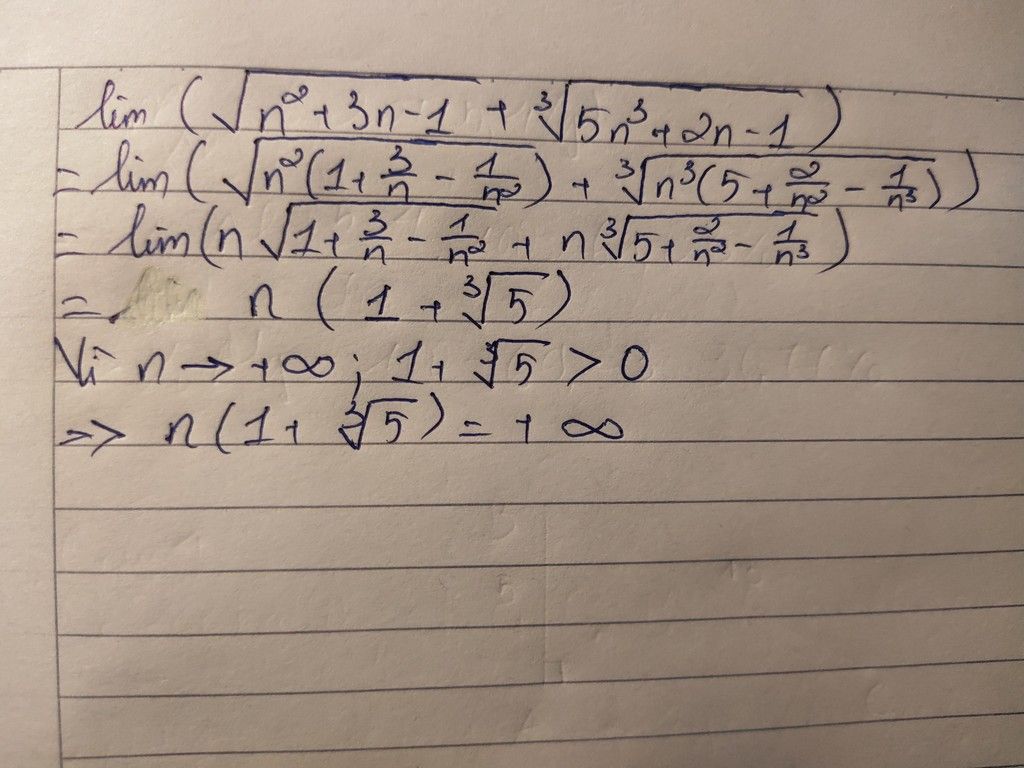 lim (√(n² + 3n - 1) + ∛(5n³ + 2n - 1))
= lim (√(n²(1 + 3/n - 1/n²)) + ∛(n³(5 + 2/n² - 1/n³)))
= lim (n√(1 + 3/n - 1/n²) + n∛(5 + 2/n² - 1/n³))
= n (1 + ∛5)
Vì n → +∞ ; 1 + ∛5 > 0
=> n (1 + ∛5) = + ∞